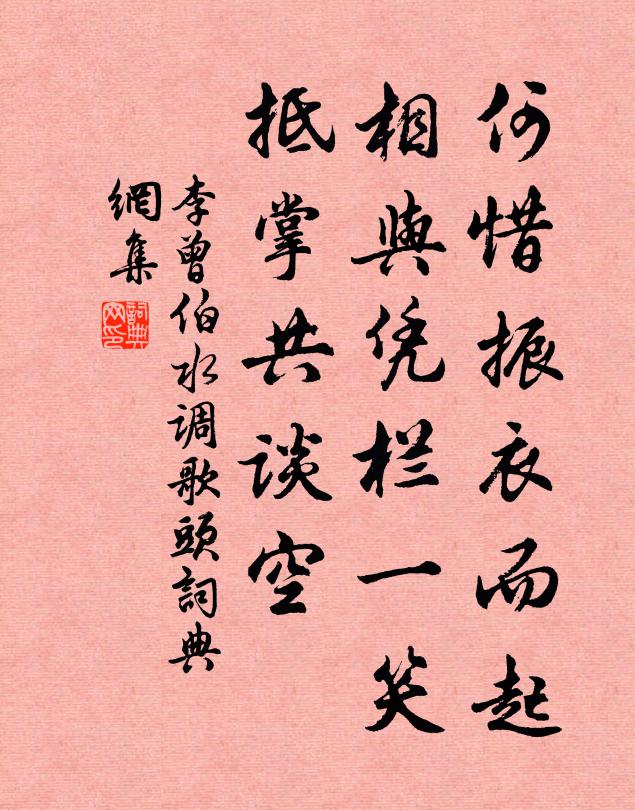 何惜振衣而起
相與凭栏一笑
抵掌共谈空
李曾伯水调歌頭詞典
網集
詞典网印